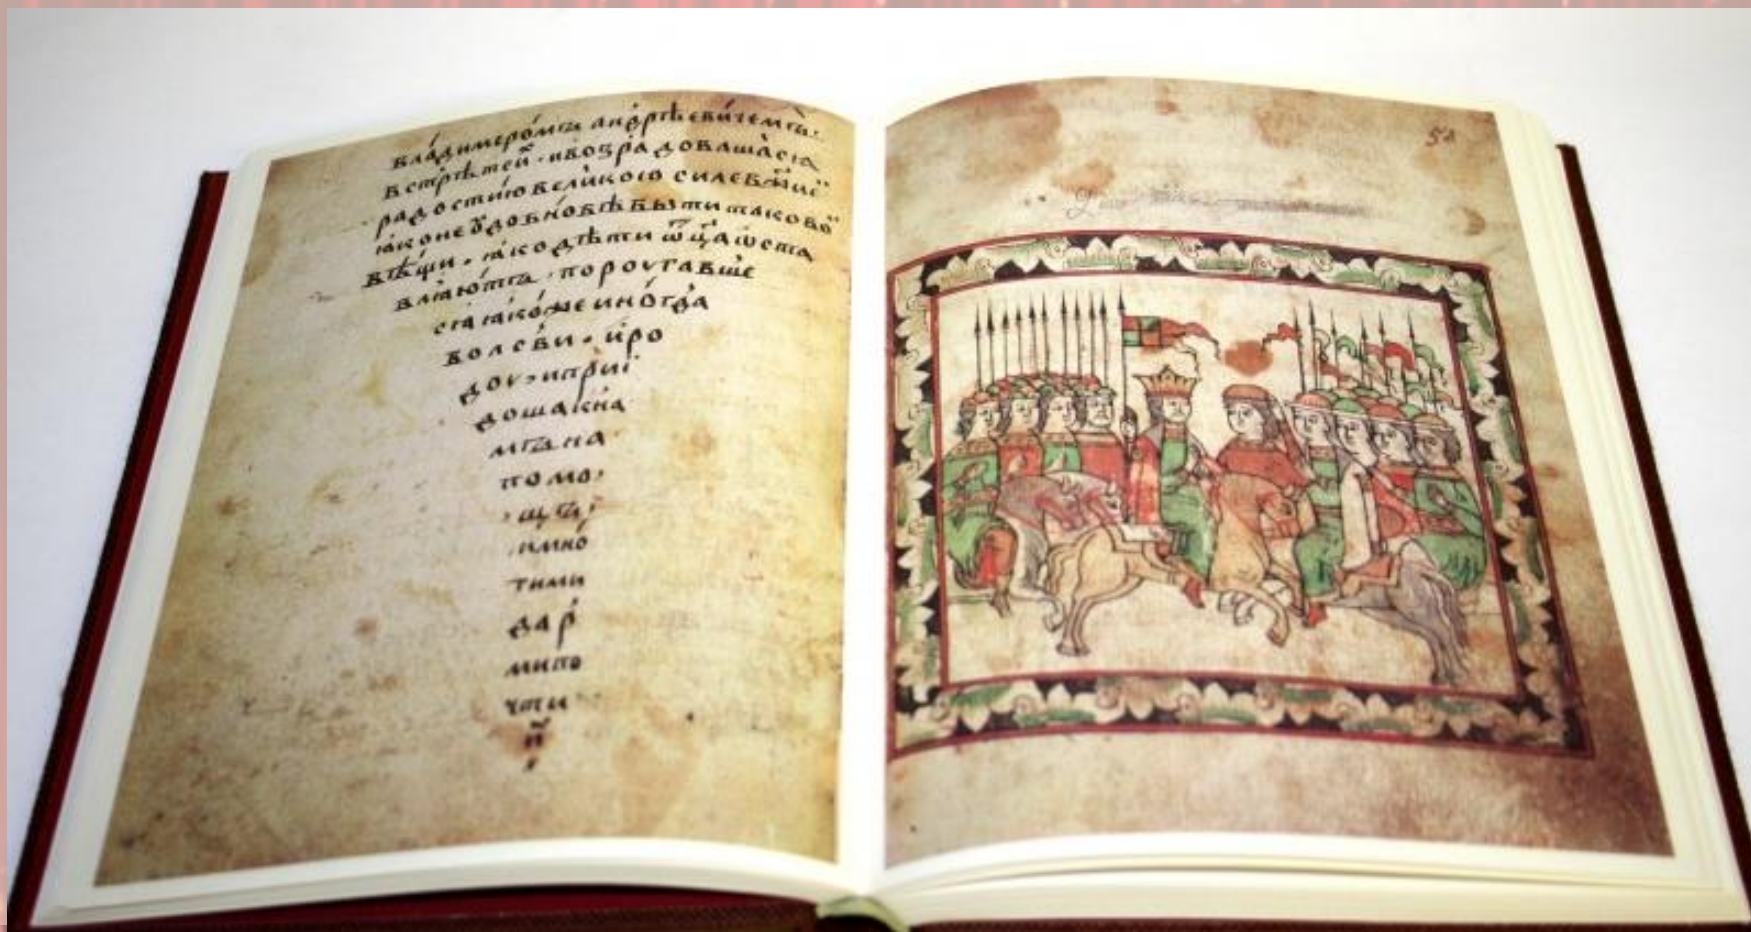 владимеро́мъ андрѣеви́чемъ·
встрѣтеи̏· ивозрадовашася
радостию великою силевѣ̑ции
яконеꙋдобнобѣ бытитаково
вѣщи· якодѣти ѿц҃аѡста
вляютъ· пороугавше
ся якоже иногда
волсви· иро
доу· иприі
дошакна
мъна
помо·
·щъ·
имно
тими
дар
мипо
чти
н҃
58